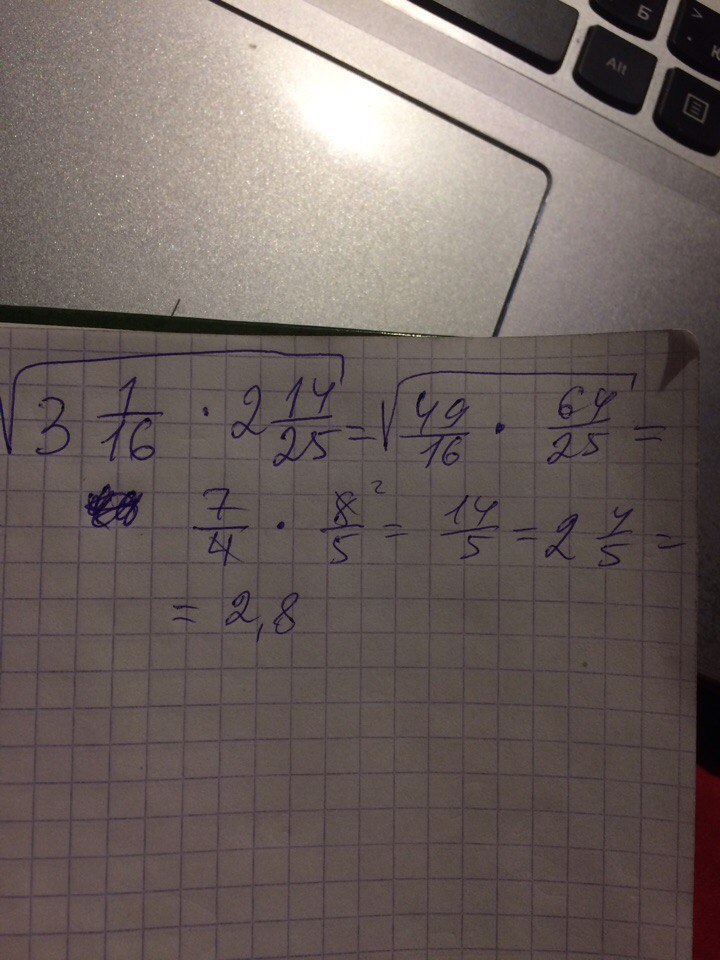 Б
Ю
Alt
√(3 1/16 · 2 14/25) = √(49/16 · 64/25) =
7/4 · 8/5 ² = 14/5 = 2 4/5 =
= 2,8